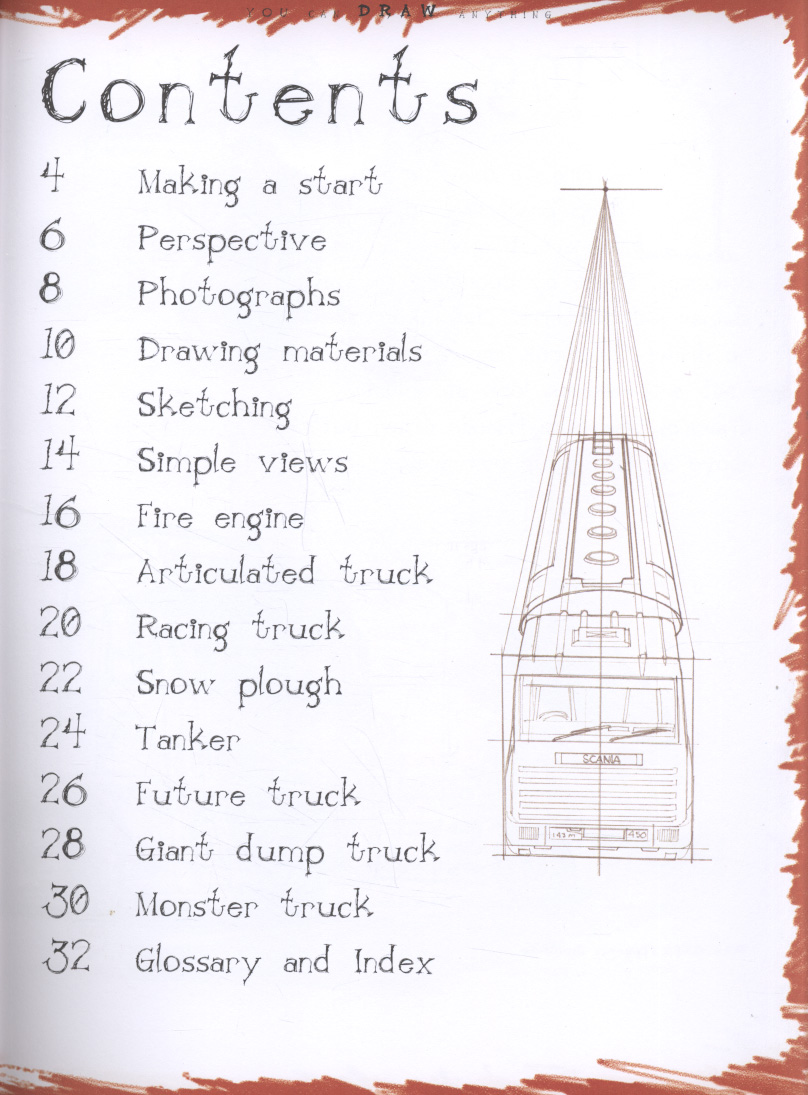 YOU CAN DRAW ANYTHING
Contents
4 Making a start
6 Perspective
8 Photographs
10 Drawing materials
12 Sketching
14 Simple views
16 Fire engine
18 Articulated truck
20 Racing truck
22 Snow plough
24 Tanker
26 Future truck
28 Giant dump truck
30 Monster truck
32 Glossary and Index
SCANIA
143 M
450